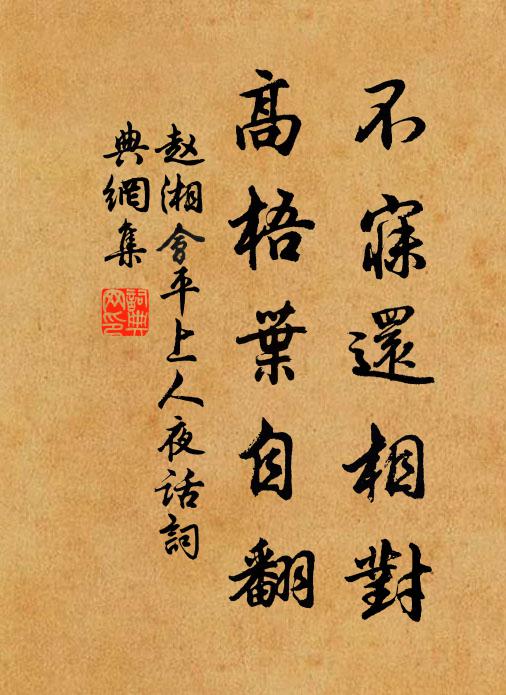 不寐還相對
高梧葉自翻
赵湘會平上人夜话詞
典網集
詞典網印